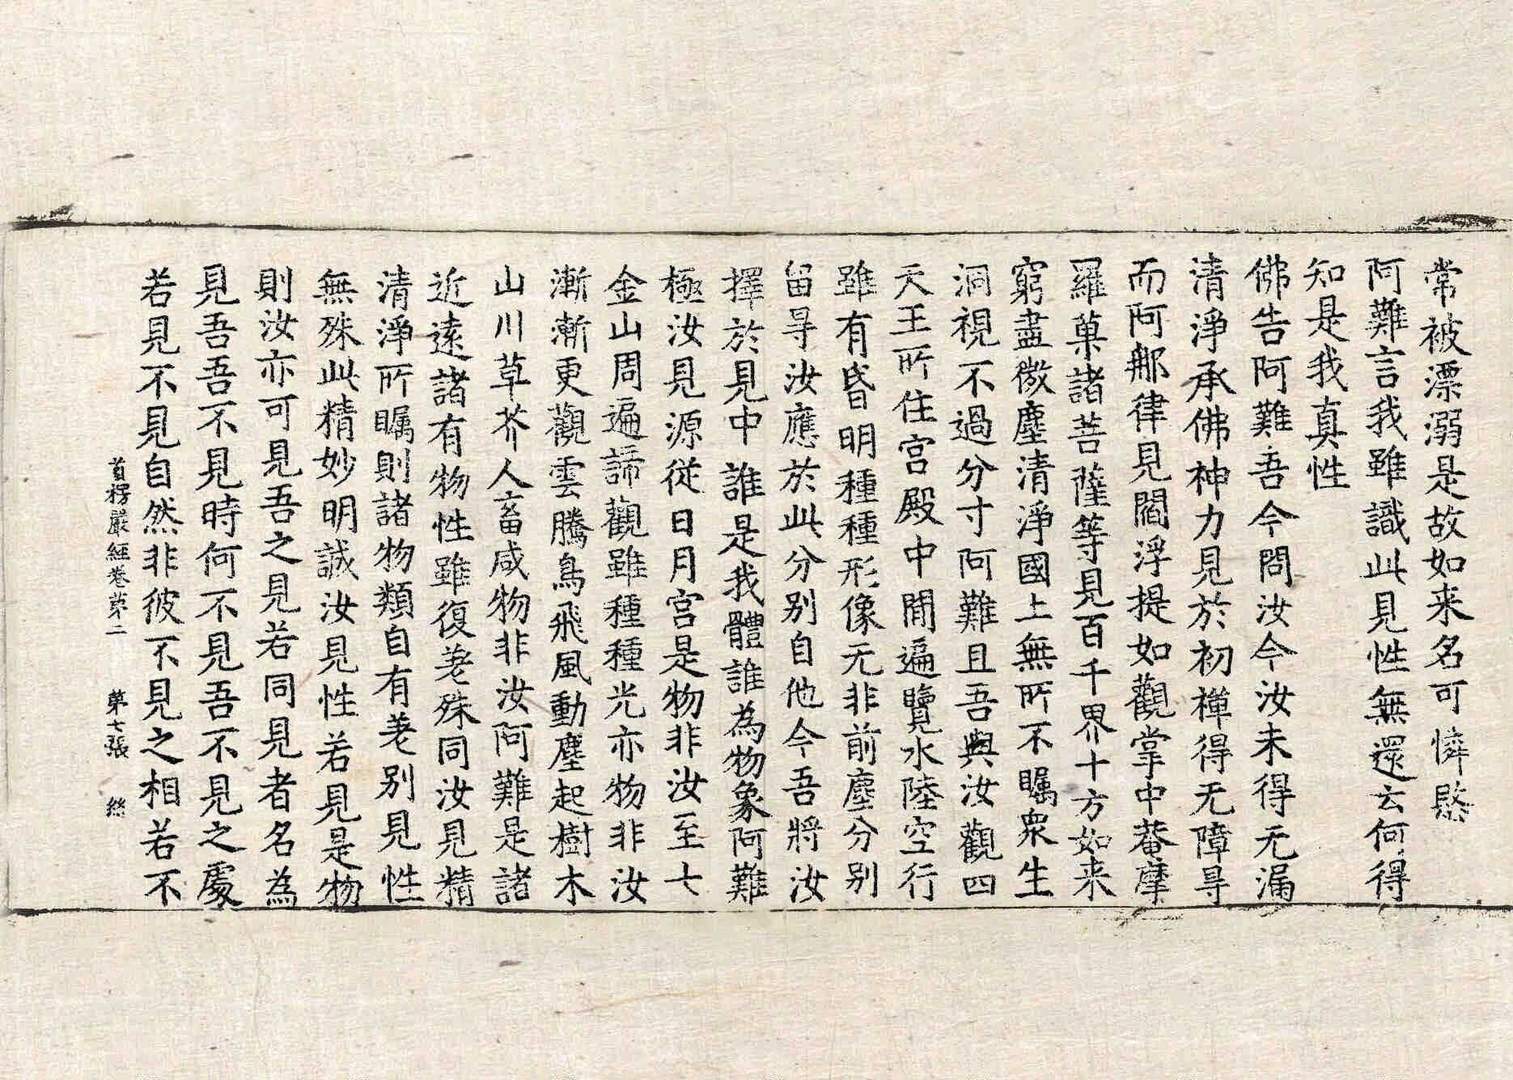 常被漂溺是故如来名可憐愍
阿難言我雖識此見性無還云何得
知是我真性
佛告阿難吾今問汝今汝未得无漏
清淨承佛神力見於初禪得无障㝵
而阿那律見閻浮提如觀掌中菴摩
羅菓諸菩薩等見百千界十方如来
窮盡微塵清淨國土無所不矚衆生
洞視不過分寸阿難且吾與汝觀四
天王所住宮殿中間遍覽水陸空行
雖有昏明種種形像无非前塵分別
留㝵汝應於此分別自他今吾將汝
擇於見中誰是我體誰為物象阿難
極汝見源從日月宮是物非汝至七
金山周遍諦觀雖種種光亦物非汝
漸漸更觀雲騰鳥飛風動塵起樹木
山川草芥人畜咸物非汝阿難是諸
近遠諸有物性雖復差殊同汝見精
清淨所矚則諸物類自有差別見性
無殊此精妙明誠汝見性若見是物
則汝亦可見吾之見若同見者名為
見吾吾不見時何不見吾不見之處
若見不見自然非彼不見之相若不
首楞嚴經卷第二 第七張